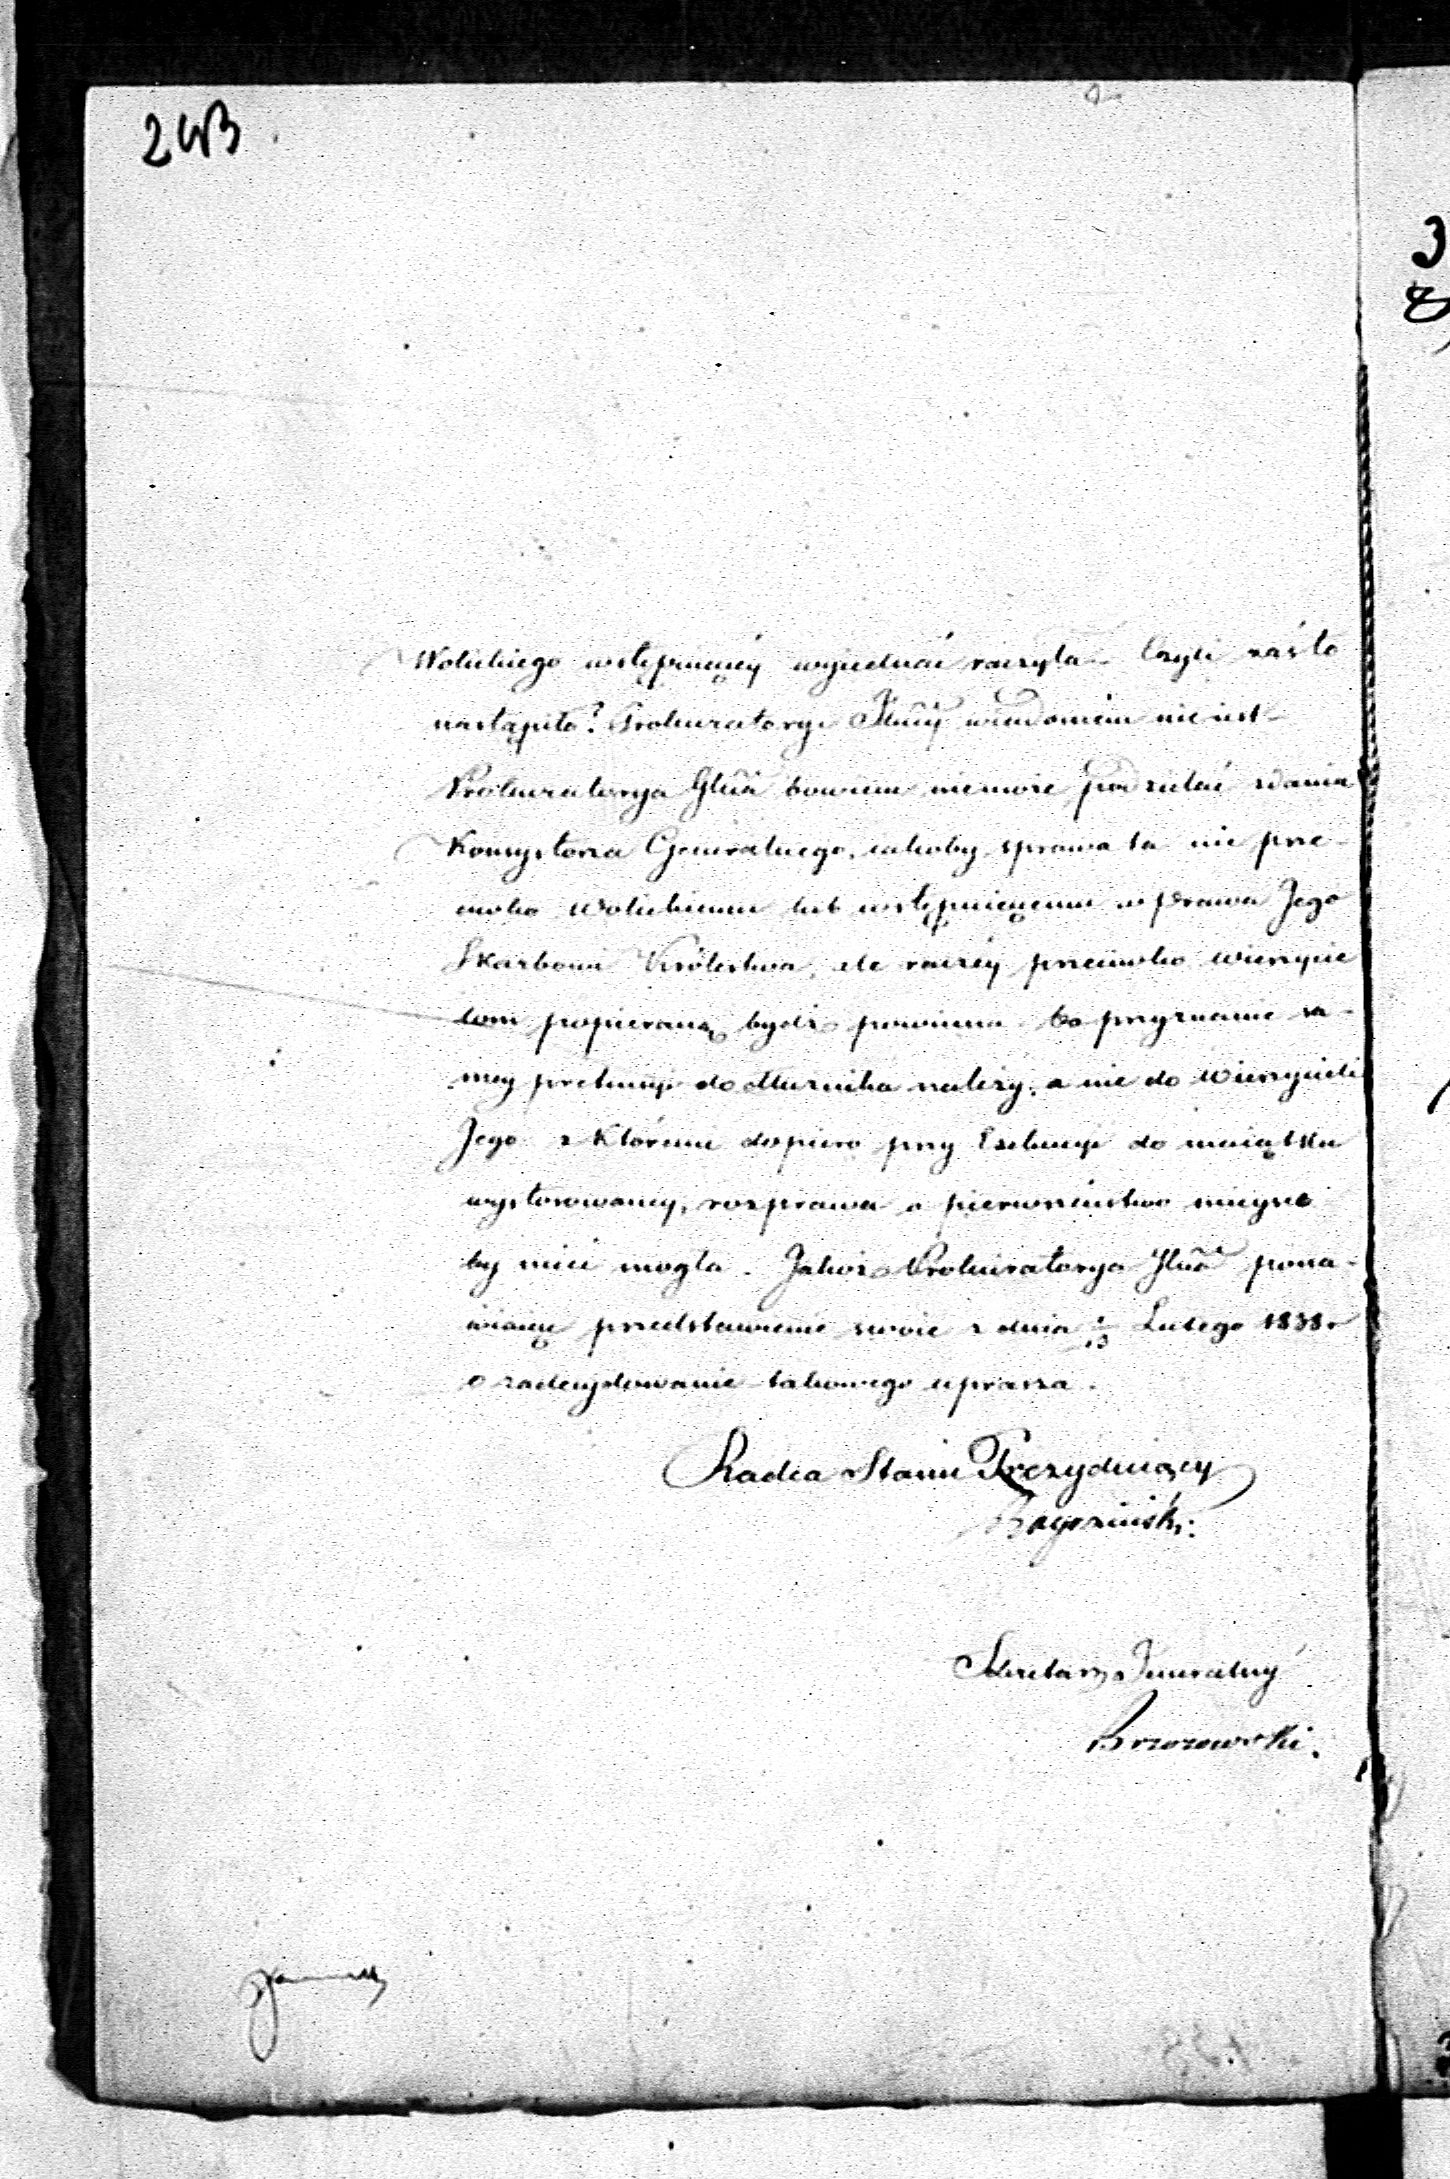 243
Wolickiego wstępuiący wyiednać raczyła. Czyli zaś to
nastąpiło? Prokuratoryi Jlney wiadomem nie iest_
Prokuratorya Glna bowiem niemoże podzielać zdania
Konsystorza Generalnego, iakoby sprawa ta nie prze-
ciwko Wolickiemu lub wstępuiącemu w prawa Jego
Skarbowi Królestwa, ale raczey przeciwko wierzycie
lom popieraną bydź powinna bo przyznanie sa-
mey pretensyi do dłużnika należy, a nie do Wierzycieli
Jego z któremi dopiero przy Exekucyi do maiątku
wystosowaney, rozprawa o pierwszeństwo mieysce
by mieć mogła. Jakoż Prokuratorya Jlna pona-
wiaiąc przedstawienie swoie z dnia 1/13 Lutego 1838 r
o zadecydowanie takowego uprasza.
Radca Stanu Prezyduiący
Sekretarz Jeneralny
Brzozowski.